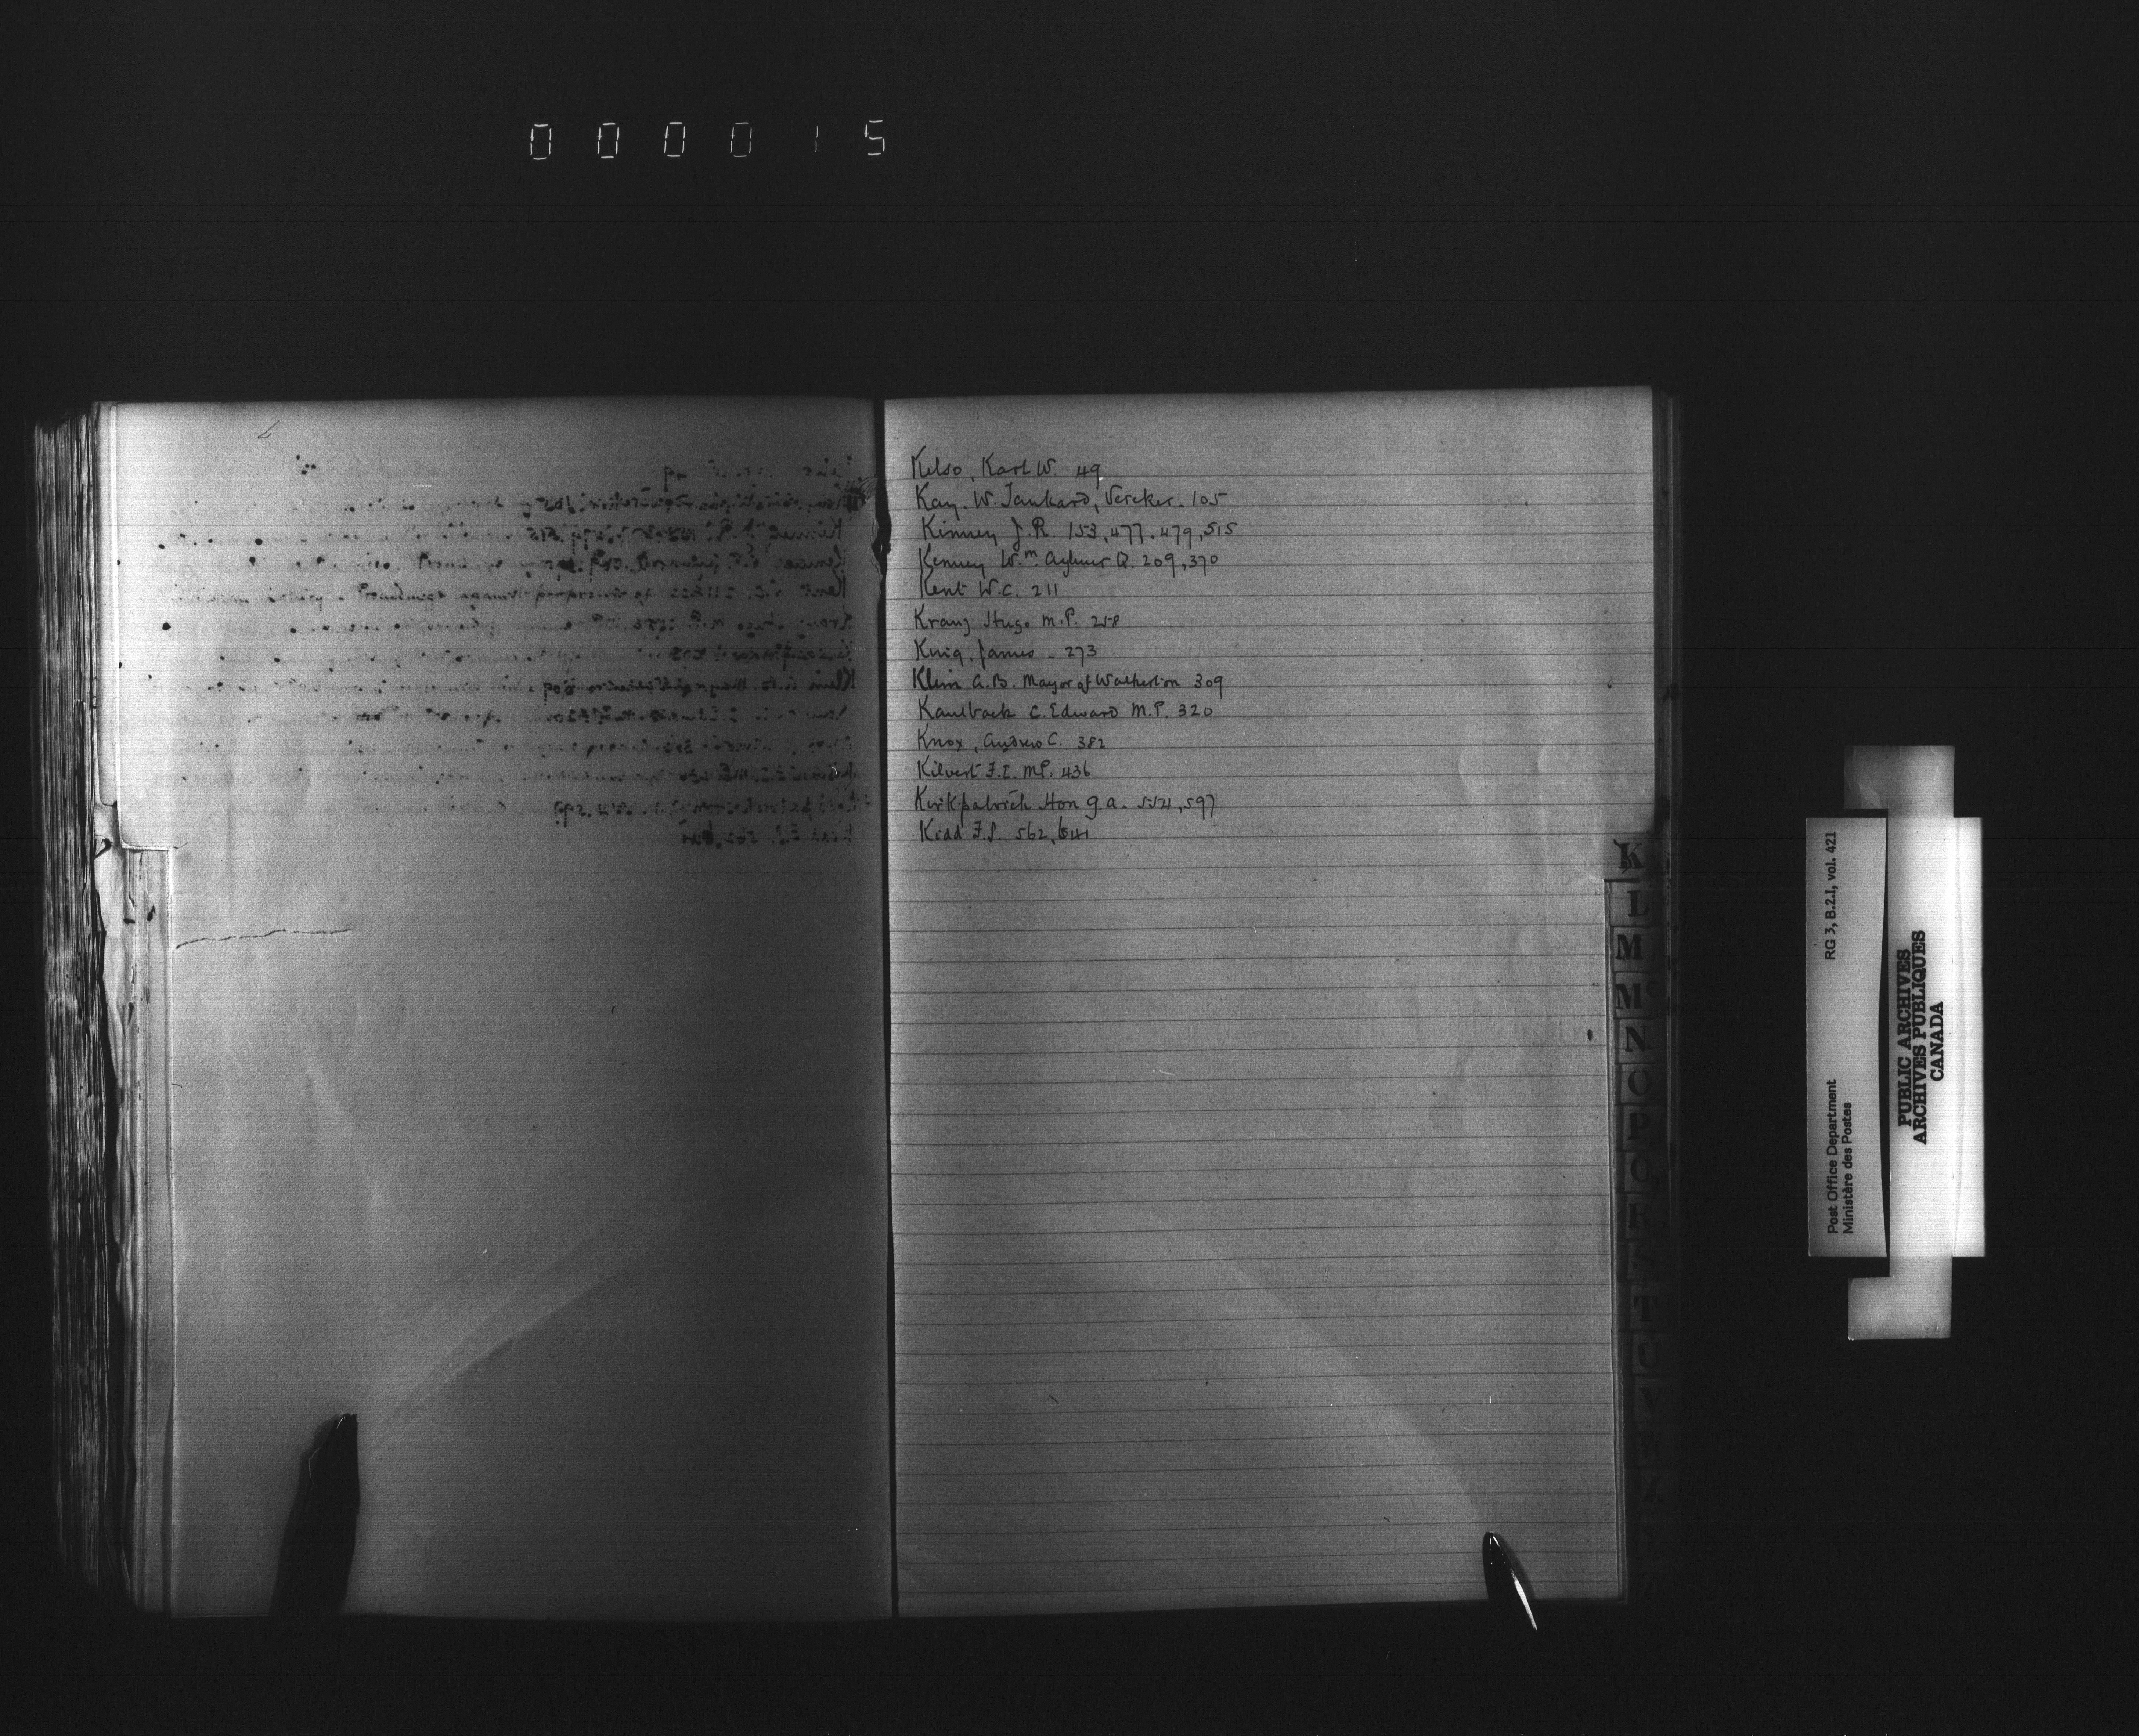 000015
Kelso, Karl W. 49
Kay. W. Tankard, Vereker. 105
Kinney J.R. 153, 477. 479, 515
Kenney Wm. Aylmer Q. 209, 370
Kent W.C. 211
Kranz Hugo M.P. 258
King. James - 273
Klein A.B. Mayor of Walkerton 309
Kaulback C. Edward M.P. 320
Knox, Andrew C. 382
Kilvert F.E. MP. 436
Kirkpatrick Hon G.A. 554, 597
Kidd F.S. 562, 641
K
L
M
Mc
N
O
P
Q
R
S
T
U
V
W
RG 3, B.2.I, vol. 421
Post Office Department
Ministère des Postes
PUBLIC ARCHIVES
ARCHIVES PUBLIQUES
CANADA